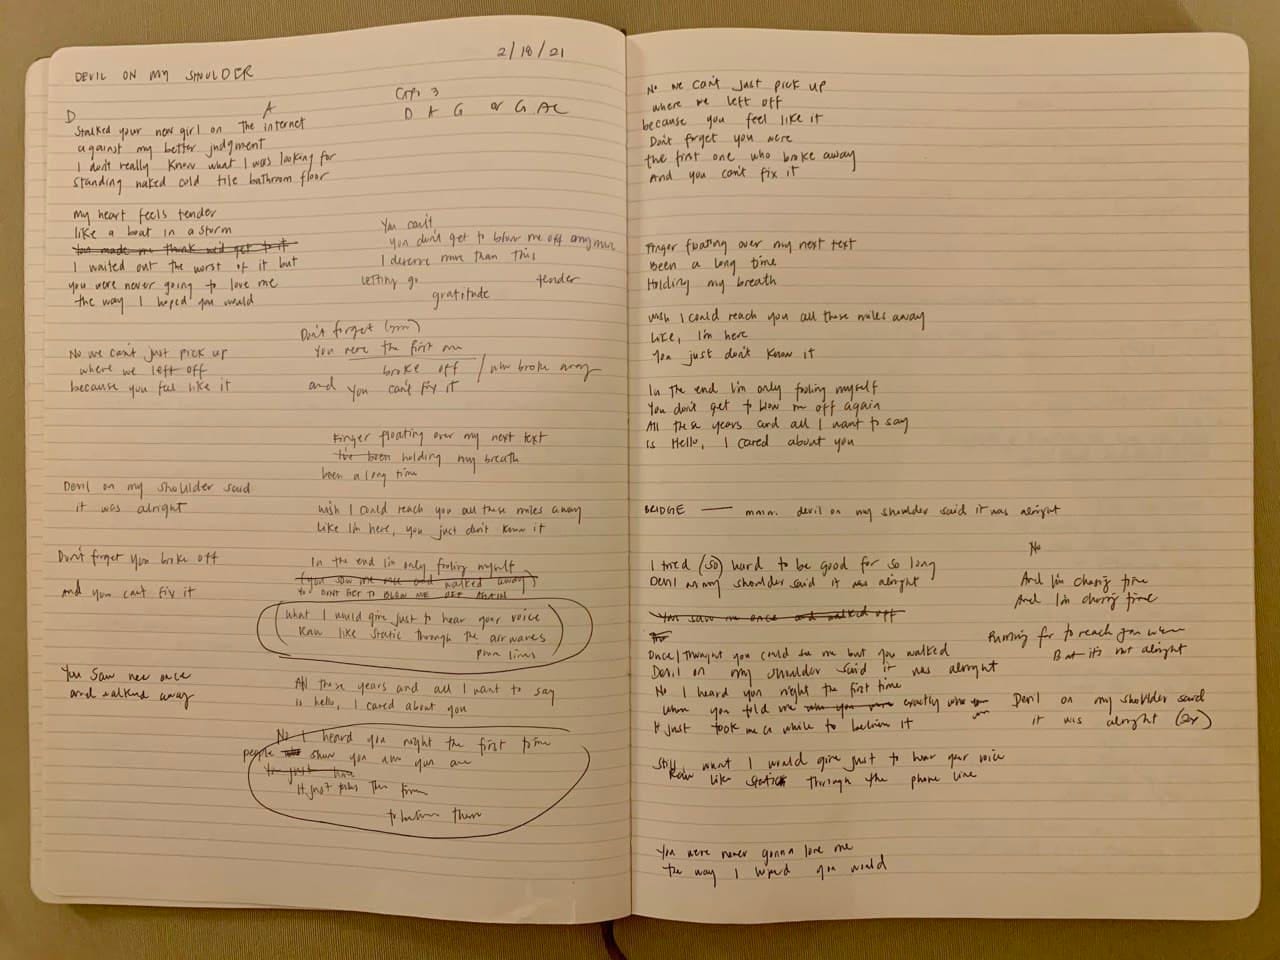 2/18/21
DEVIL ON MY SHOULDER
CAPO 3
D A G or G A C
D A
Stalked your new girl on the internet
against my better judgment
I don't really know what I was looking for
standing naked cold tile bathroom floor
My heart feels tender
like a boat in a storm
You made me think we'd get to it
I waited out the worst of it but
you were never going to love me
the way I hoped you would
You can't
You don't get to blow me off anymore
I deserve more than this
Letting go
tender
gratitude
No we can't just pick up
where we left off
because you feel like it
Don't forget
You were the first one
broke off / who broke away
and you can't fix it
Finger floating over my next text
I've been holding my breath
been a long time
Devil on my shoulder said
it was alright
wish I could reach you all these miles away
Like I'm here, you just don't know it
Don't forget you broke off
and you can't fix it
In the end I'm only fooling myself
(you saw me once and walked away)
YOU DON'T GET TO BLOW ME OFF AGAIN
(what I would give just to hear your voice
Raw like static through the airwaves
phone lines)
You saw me once
and walked away
All these years and all I want to say
is hello, I cared about you
No I heard you right the first time
people show you who you are
It just takes the time
to believe them
No we can't just pick up
where we left off
because you feel like it
Don't forget you were
the first one who broke away
And you can't fix it
Finger floating over my next text
Been a long time
Holding my breath
wish I could reach you all these miles away
Like, I'm here
You just don't know it
In the end I'm only fooling myself
You don't get to blow me off again
All these years and all I want to say
is Hello, I cared about you
BRIDGE — mmm. devil on my shoulder said it was alright
I tried (so) hard to be good for so long
Devil on my shoulder said it was alright
You saw me once and walked off
Once I thought you could see me but you walked
Devil on my shoulder said it was alright
No I heard you right the first time
when you told me who you were exactly who you
It just took me a while to believe it
No
And I'm chasing time
And I'm chasing time
Running far to reach you
But it's not alright
Devil on my shoulder said
it was alright (2x)
Still what I would give just to hear your voice
Raw like static through the phone line
You were never gonna love me
the way I hoped you would